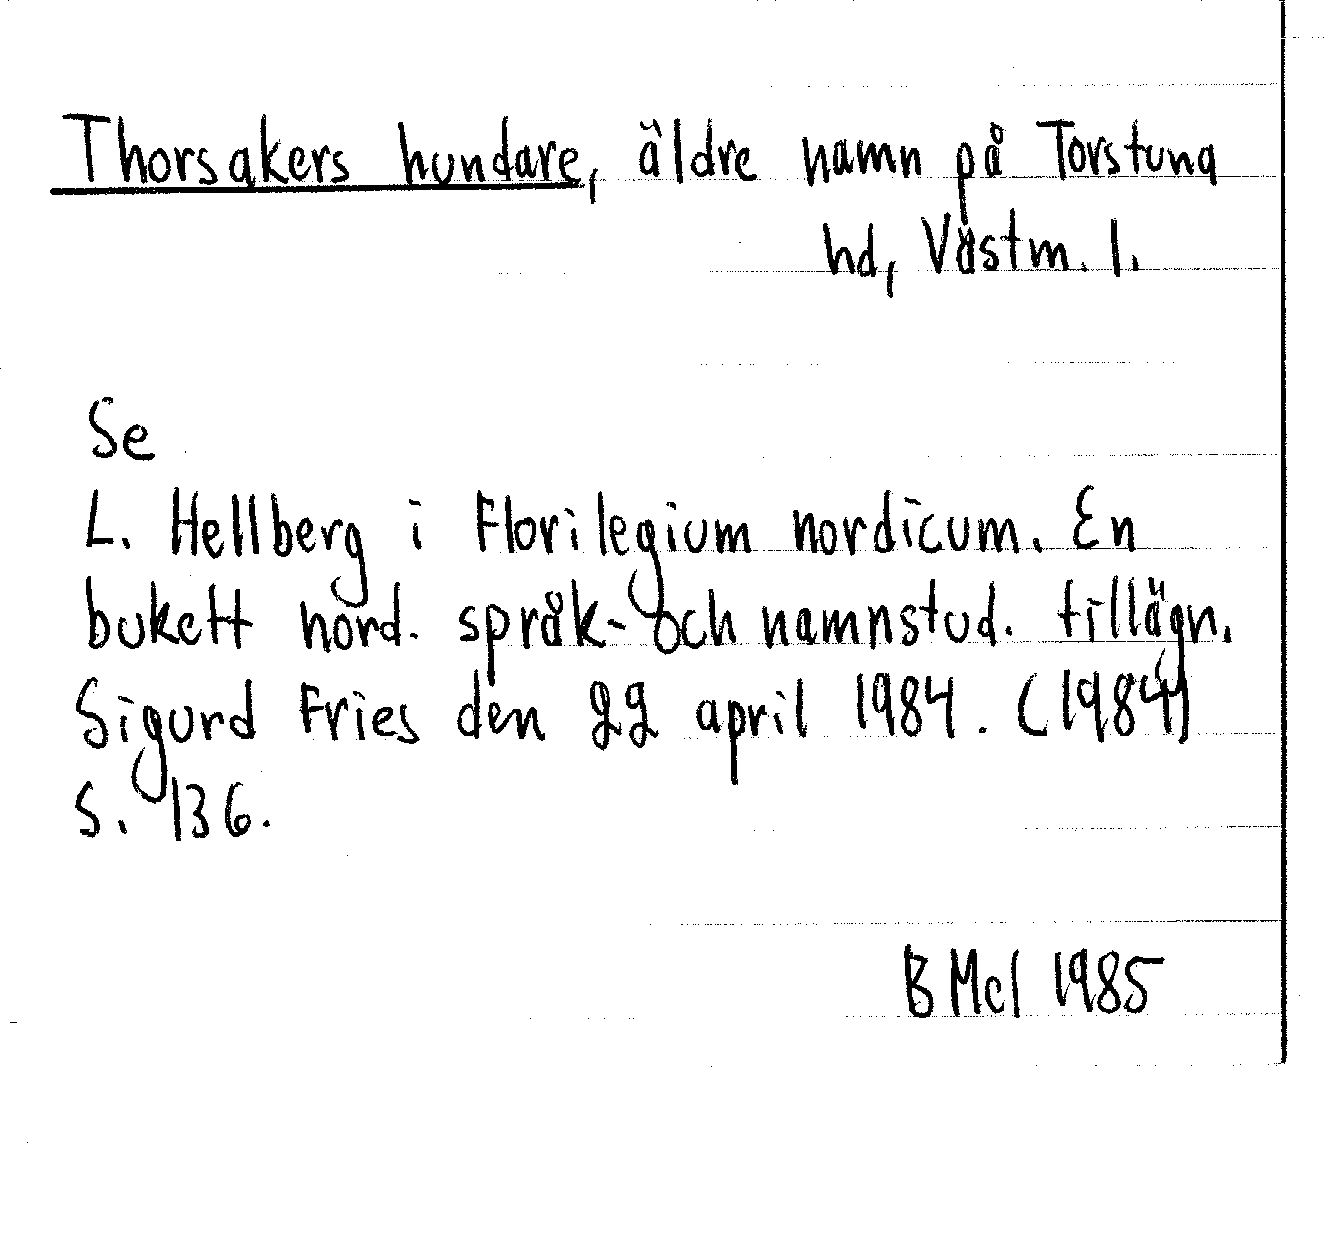 Thorsakers hundare, äldre namn på Torstuna
hd, Västm. l.
Se
L. Hellberg i Florilegium nordicum. En
bukett nord. språk- och namnstud. tillägn.
Sigurd Fries den 22 april 1984. (1984)
S. 136.
B Mcl 1985